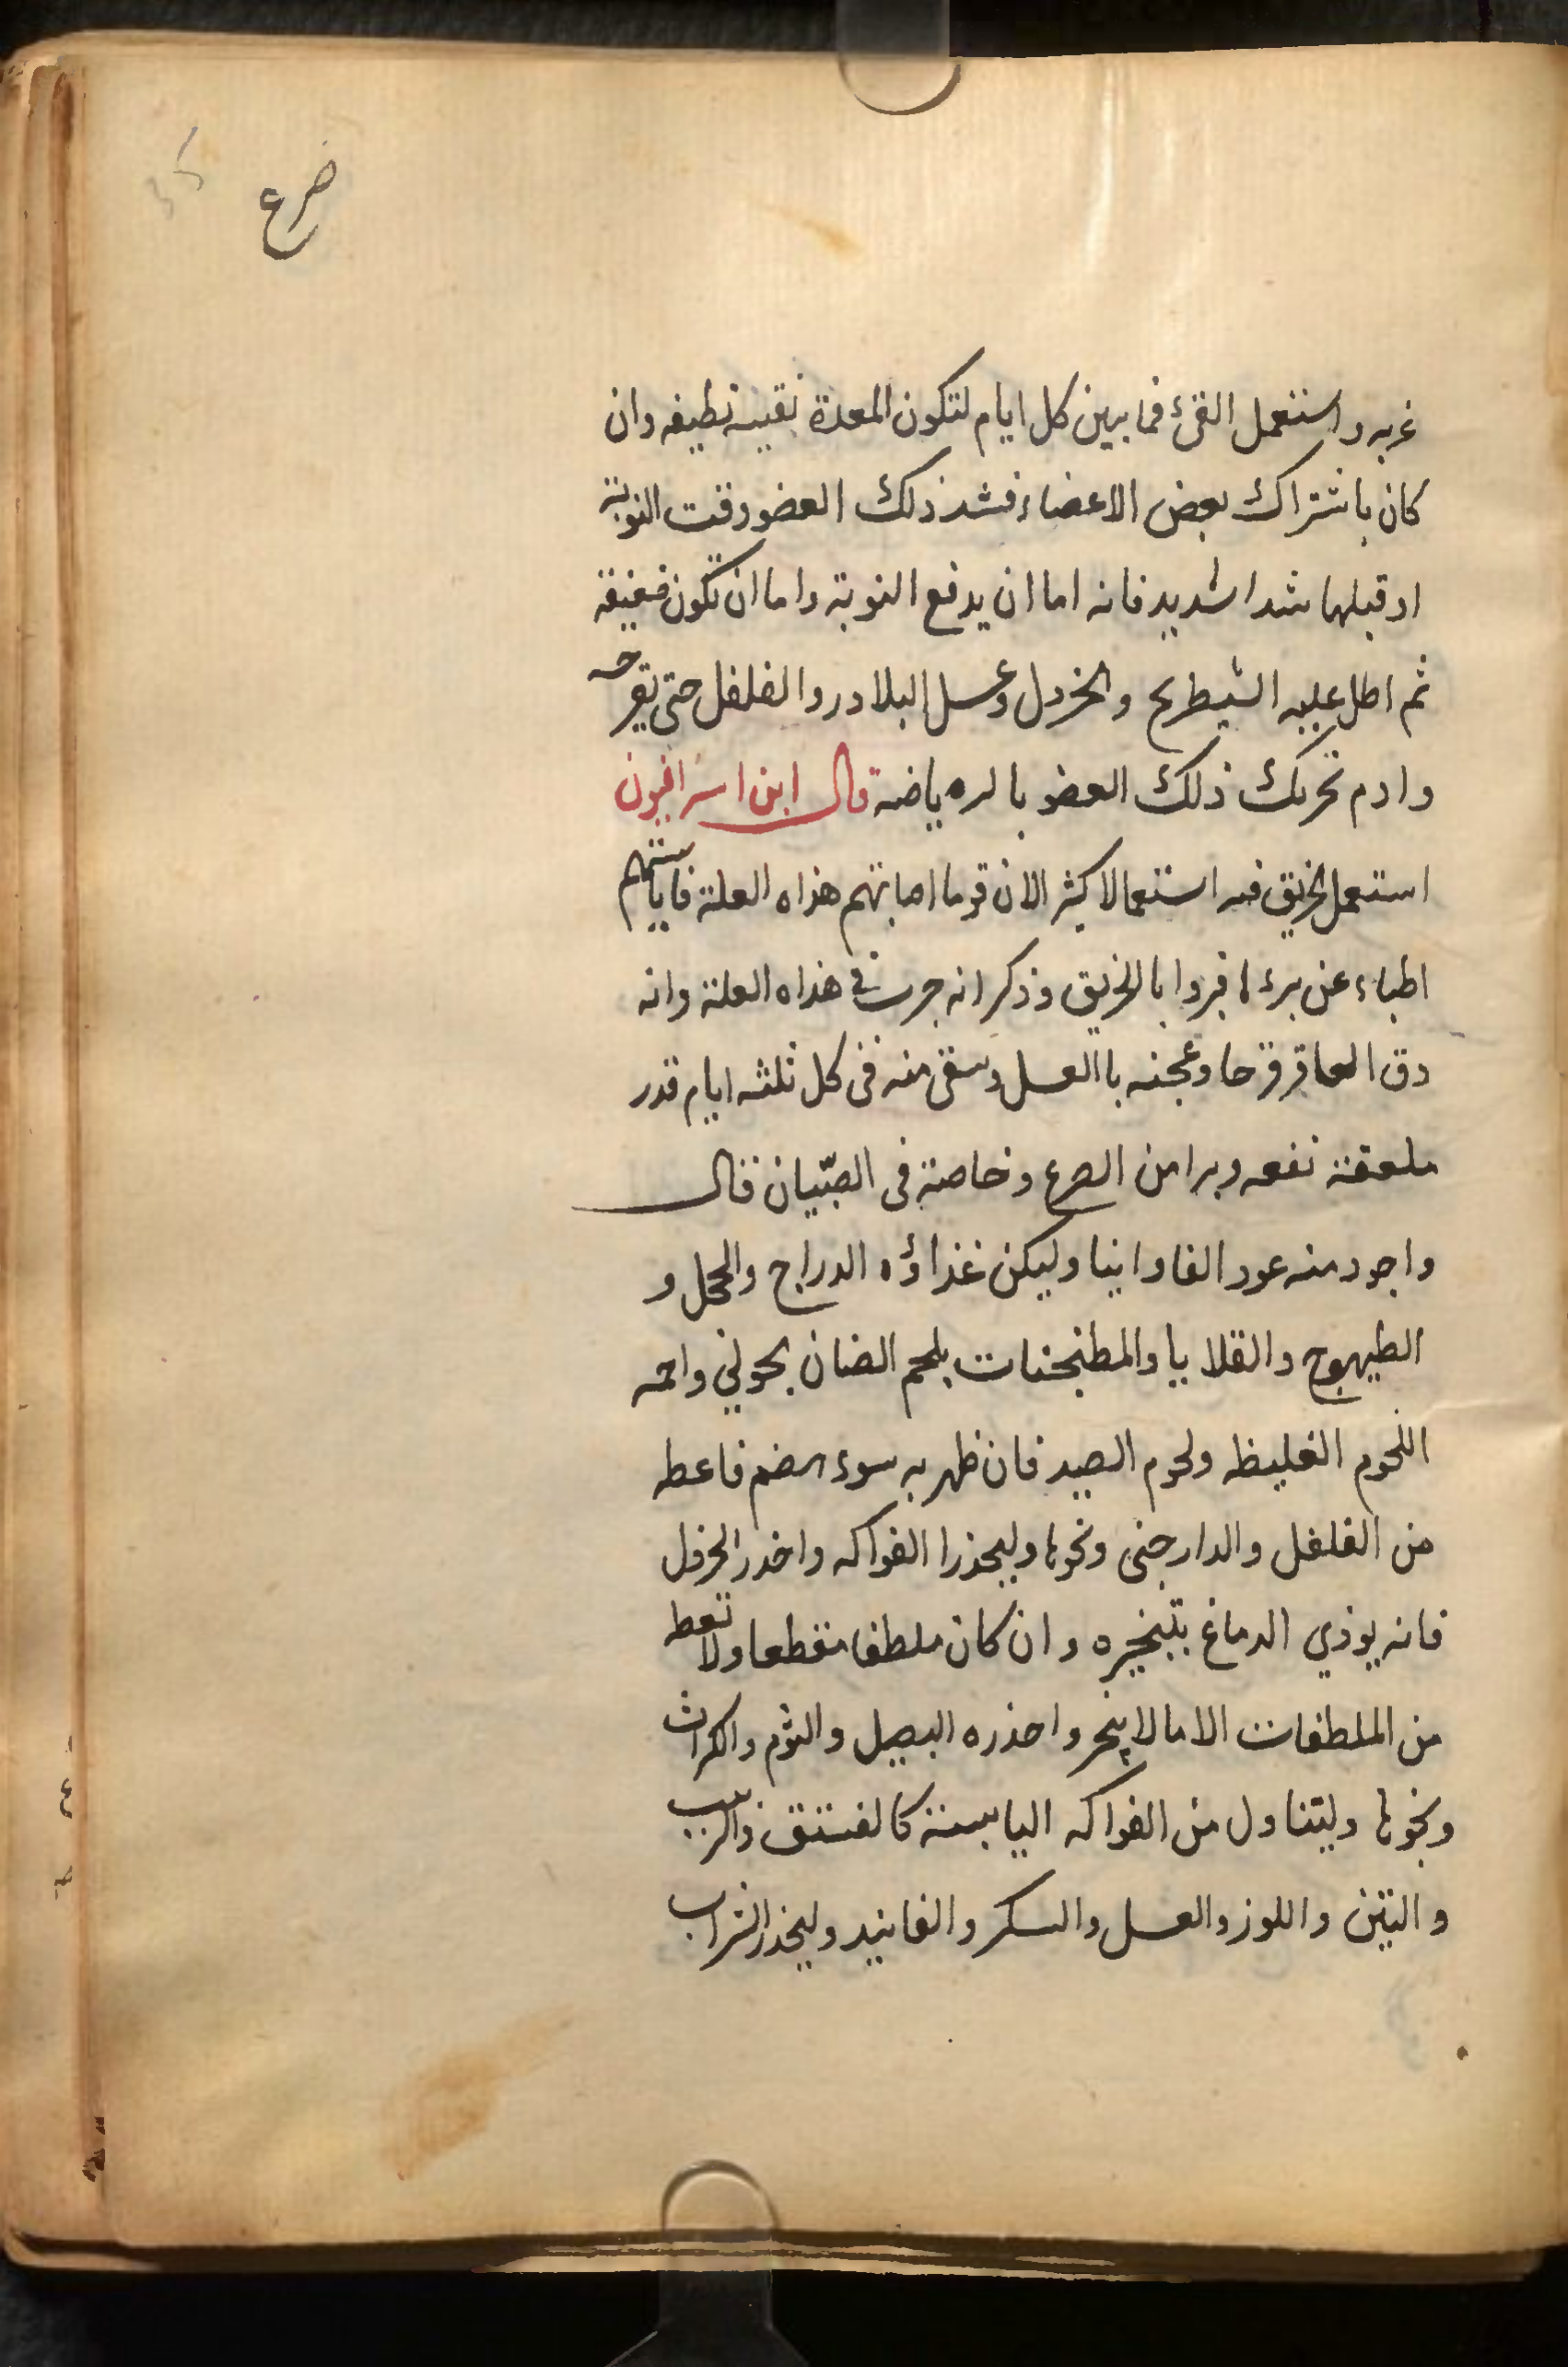 صرع
غربه واستعمل القئ فما بين كل ايام لتكون المعدة نقيية نطيفه وان
كان باشتراك بعض الاعضاء فشد ذلك العضو وقت النوبة
او قبلها شدا شديد فانه اما ان يدفع النوبة واما ان تكون ضعيفة
ثم اطل عليه الشيطرج والخردل وعسل البلادر والفلفل حتى تقرحه
وادم تحريك ذلك العضو بالرياضة قال ابن اسرافيون
استعمل الخربق فيه استعمالا كثر الان قوما اصابتهم هذاه العلة فايأستهم
اطباء عن برء لها فبروا بالخربق وذكر انه جرب في هذاه العلة وانه
دق العاقرقرحا وعجنه باالعسل وسقى منه فى كل ثلثه ايام قدر
ملعقة نفعه وبرا من الصرع وخاصة فى الصبّيان قال
واجود منه عود الفاوانيا وليكن غذاؤه الدراج والحجل و
الطيهوج والقلايا والمطنجنات بلحم الضان بحولي واحمه
اللحوم الغليظه ولحوم الصيد فان ظهر به سوء هضم فاعطه
من الفلفل والدارجنى ونحوها وليحذرا الفواكه واخدر الخردل
فانه يوذي الدماغ بتبخيره وان كان ملطفا مقطعا ولا تعط
من الملطفات الا مالا يبخر واحذره البصل والثوم والكراث
ونحوها وليتناول من الفواكه اليابسة كالفستق والزبيب
والتين واللوز والعسل والسكر والفانيد وليحذر الشراب